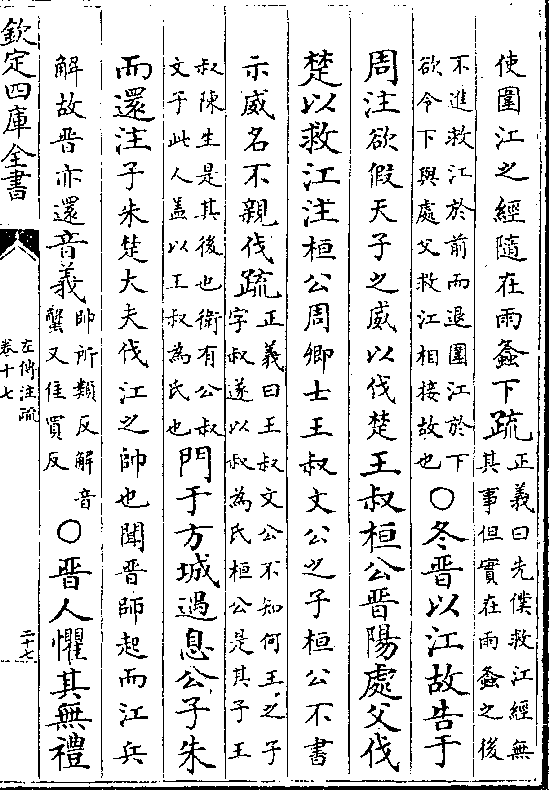 使圍江之經隨在雨螽下疏正義曰先僕救江經無
其事但實在雨螽之後
不進救江於前而退圍江於下
欲令下與處父救江相接故也○冬晉以江故告于
周注欲假天子之威以伐楚王叔桓公晉陽處父伐
楚以救江注桓公周卿士王叔文公之子桓公不書
示威名不親伐疏正義曰王叔文公不知何王之子
字叔遂以叔為氏桓公是其子王
叔陳生是其後也衛有公叔
文子此人蓋以王叔為氏也門于方城遇息公子朱
而還注子朱楚大夫伐江之帥也聞晉師起而江兵
解故晉亦還音義帥所類反解音
蟹又佳買反○晉人懼其無禮
欽定四庫全書
左傳注疏
卷十七
二十七